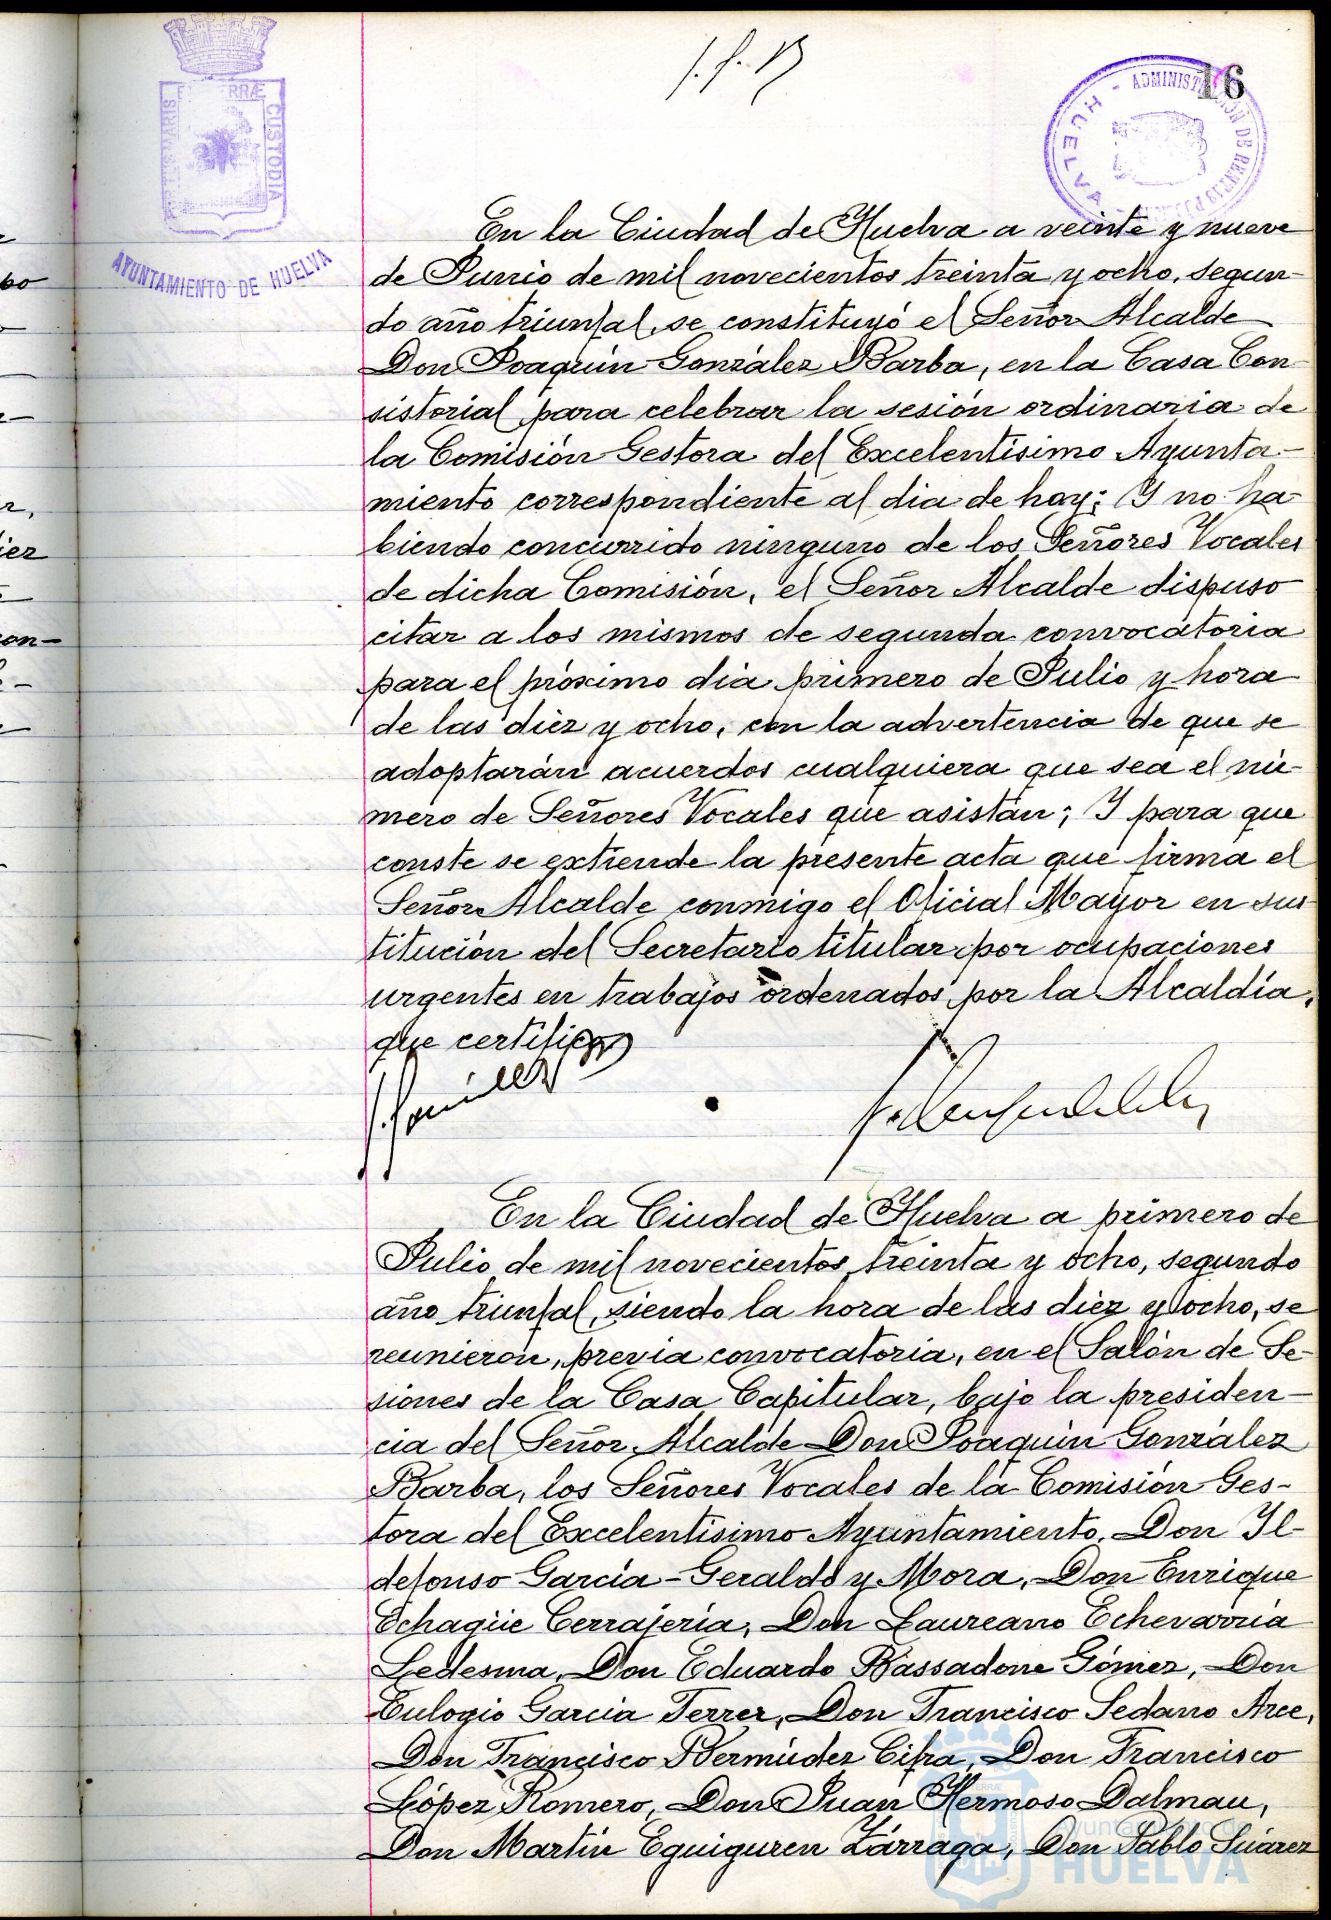 16
PORTUS MARIS ET TERRÆ CUSTODIA
AYUNTAMIENTO DE HUELVA
ADMINISTRACIÓN DE RENTAS PÚBLICAS - HUELVA -
En la Ciudad de Huelva a veinte y nueve
de Junio de mil novecientos treinta y ocho, segun-
do año triunfal, se constituyó el Señor Alcalde
Don Joaquín González Barba, en la Casa Con-
sistorial para celebrar la sesión ordinaria de
la Comisión Gestora del Excelentísimo Ayunta-
miento correspondiente al dia de hoy; Y no ha-
biendo concurrido ninguno de los Señores Vocales
de dicha Comisión, el Señor Alcalde dispuso
citar a los mismos de segunda convocatoria
para el próximo dia primero de Julio y hora
de las diéz y ocho, con la advertencia de que se
adoptarán acuerdos cualquiera que sea el nú-
mero de Señores Vocales que asistan; Y para que
conste se extiende la presente acta que firma el
Señor Alcalde conmigo el Oficial Mayor en sus-
titución del Secretario titular por ocupaciones
urgentes en trabajos ordenados por la Alcaldía,
que certifico
En la Ciudad de Huelva a primero de
Julio de mil novecientos treinta y ocho, segundo
año triunfal, siendo la hora de las diez y ocho, se
reunieron, previa convocatoria, en el Salón de Se-
siones de la Casa Capitular, bajo la presiden-
cia del Señor Alcalde Don Joaquín González
Barba, los Señores Vocales de la Comisión Ges-
tora del Excelentísimo Ayuntamiento, Don Il-
defonso García-Geraldo y Mora, Don Enrique
Echagüe Cerrajería, Don Laureano Echevarría
Ledesma, Don Eduardo Bassadone Gómez, Don
Eulogio García Terrer, Don Francisco Sedano Arce,
Don Francisco Bermúdez Cifra, Don Francisco
López Romero, Don Juan Hermoso Dalmau,
Don Martín Eguiguren Zárraga, Don Pablo Suárez
Ayuntamiento de
HUELVA